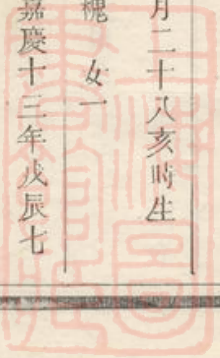 月二十八亥時生
槐 女一
嘉慶十三年戊辰七